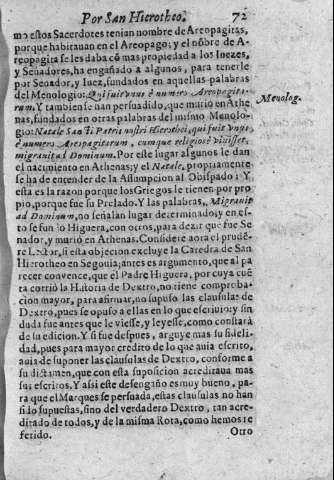 Por San Hieroteo. 72
mo estos Sacerdotes tenian nombre de Areopagitas,
porque habitauan en el Areopago; y el nõbre de A-
reopagita se les daba cõ mas propiedad a los Iuezes,
y Señadores, ha engañado a algunos, para tenerle
por Senador, y Iuez, fundados en aquellas palabras
del Menologio: Qui fuit vnus è numero Areopagita-
rum. Y tambien se nan persuadido, que murió en Athe
nas, fundados en otras palabras del mismo Menolo-
gio: Natale San Ti Patris nostri Hierothei, qui fuit vnus
è numero Areopagitarum, cumque religiosè vixisset,
migrauit ad Dominum. Por este lugar algunos le dan
el nacimiento en Athenas; y el Natale, propiamente
se ha de entender de la Assumpcion al Obispado: Y
esta es la razon porque los Griegos le tienen por pro
pio, porque fue su Prelado. Y las palabras, Migrauit
ad Dominum, no señalan lugar determinado; y en es-
to se fundo Higuera, con otros, para dezir que fue Se
nador, y murió en Athenas. Considere aora el prudẽ-
te Lector, si esta objecion excluye la Catedra de San
Hierotheo en Segouia; antes es argumento, que al pa
recer convence, que el Padre Higuera, por cuya cuẽ
ta corrió la Historia de Dextro, no tiene comproba-
cion mayor, para afirmar, no supuso las clausulas de
Dextro, pues se opuso a ellas en lo que escriuió; y sin
duda fue antes que le viesse, y leyesse, como constará
de su edicion. Y si fue despues, arguye mas su fideli-
dad, pues para mayor credito de lo que auia escrito,
auia de suponer las clausulas de Dextro, conforme a
su dictamen, que con esta suposicion acreditaua mas
sus escritos. Y assi este desengaño es muy bueno, pa-
ra que el Marques se persuada, estas clausulas no han
sido supuestas, sino del verdadero Dextro, tan acre-
ditado de todos, y de la misma Rota, como hemos re
ferido. Otro
Menolog.